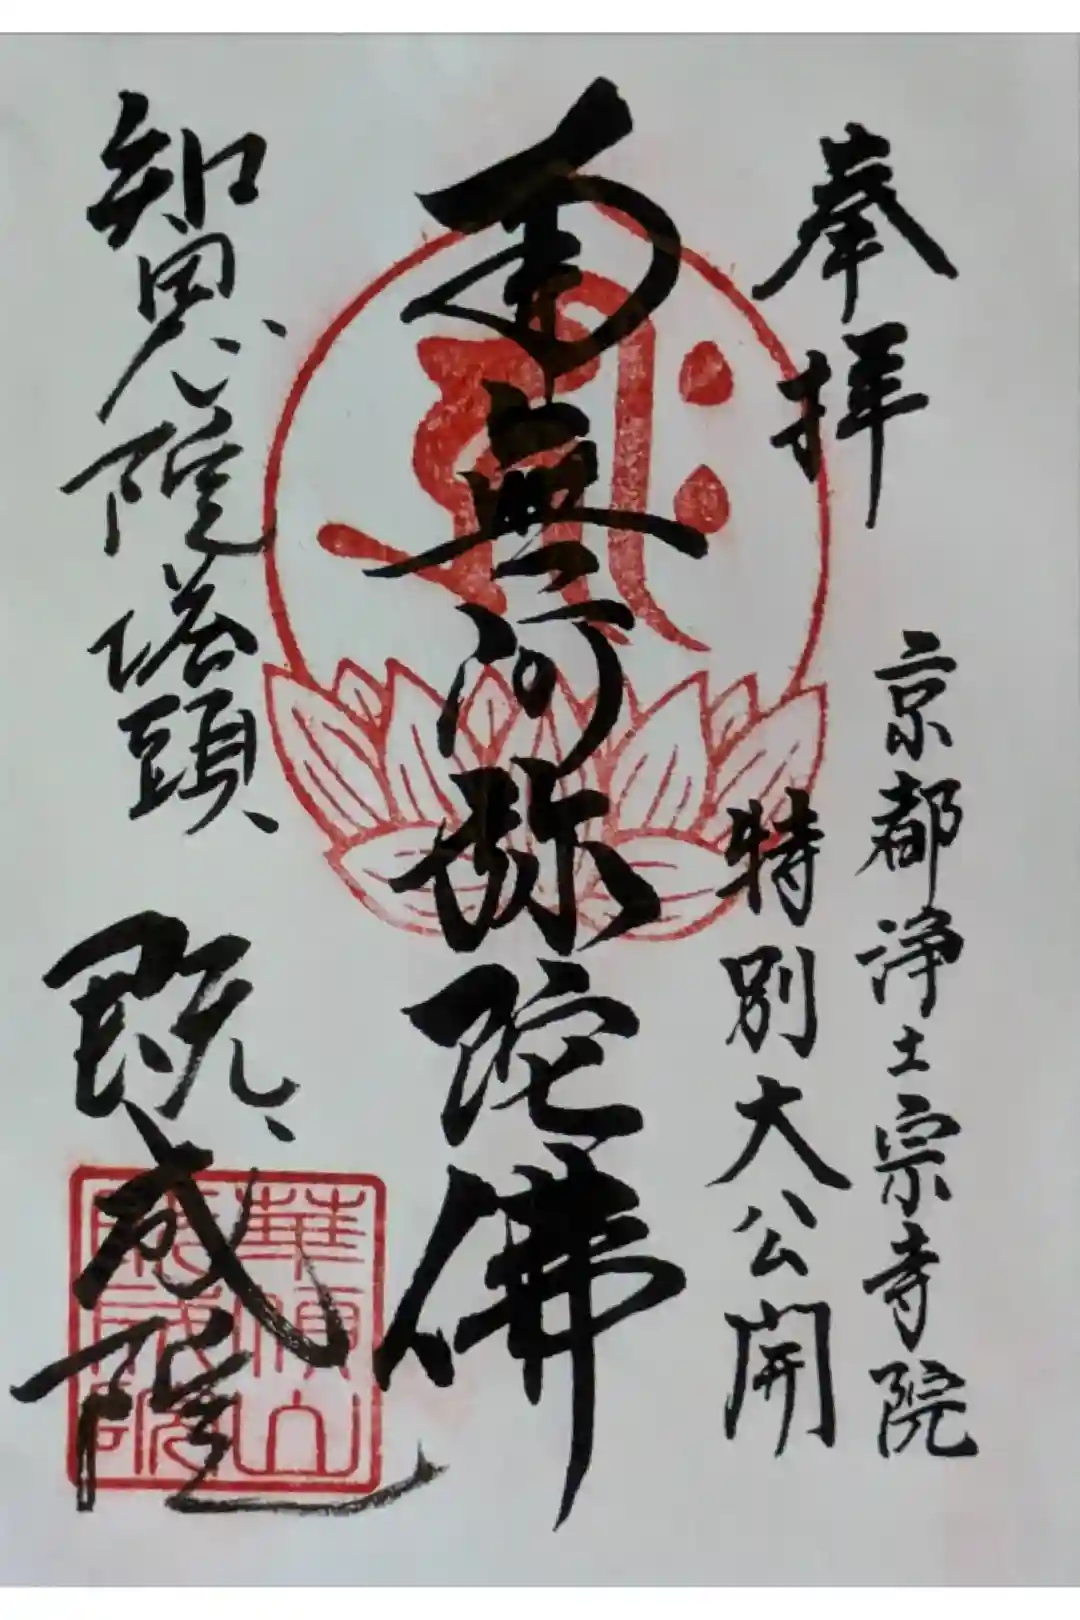 奉拝
京都浄土宗寺院
特別大公開
南無阿弥陀佛
知恩院塔頭
既成院
華頂山
既成院